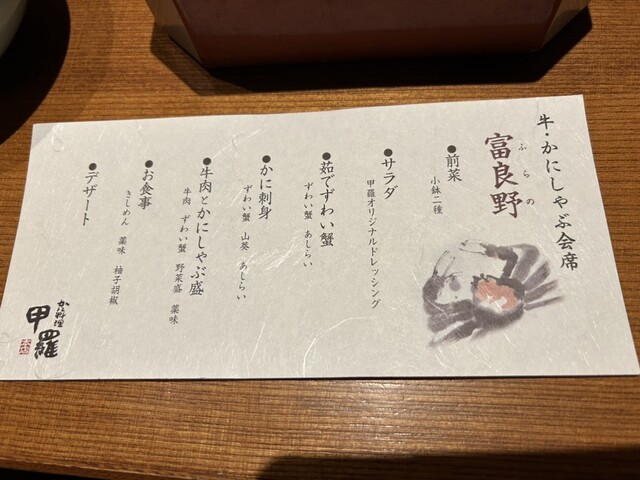 牛・かにしゃぶ会席
富良野
ふらの
●前菜
小鉢二種
●サラダ
甲羅オリジナルドレッシング
●茹でずわい蟹
ずわい蟹 あしらい
●かに刺身
ずわい蟹 山葵 あしらい
●牛肉とかにしゃぶ盛
牛肉 ずわい蟹 野菜盛 薬味
●お食事
きしめん 薬味 柚子胡椒
●デザート
かに料理
甲羅
本店